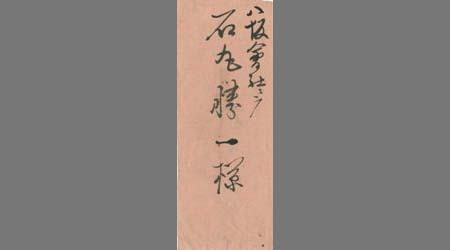 八坂會社ニテ
石丸勝一様